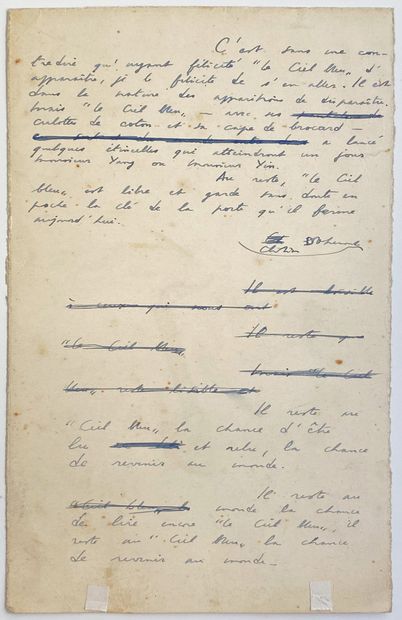 C'est sans me con-
tredire qu'ayant félicité "le Ciel bleu" d'
apparaître, je le félicite de s'en aller. Il est
dans la nature des apparitions de disparaître.
Mais "le Ciel bleu" - avec ses
culottes de coton et sa cape de brocard -
a lancé
quelques étincelles qui atteindront un jour
Monsieur Yang ou Monsieur Yin.
Au reste, "le Ciel
bleu" est libre et garde sans doute en
poche la clé de la porte qu'il ferme
aujourd'hui.
Il est
à ceux qui nous ont
Il reste
"le Ciel bleu"
mais "le Ciel
bleu" reste
Il reste au
"Ciel bleu" la chance d'être
lu et relu, la chance
de revenir au monde.
Il reste au
monde la chance
de lire encore "le Ciel bleu", il
reste au "Ciel bleu" la chance
de revenir au monde -